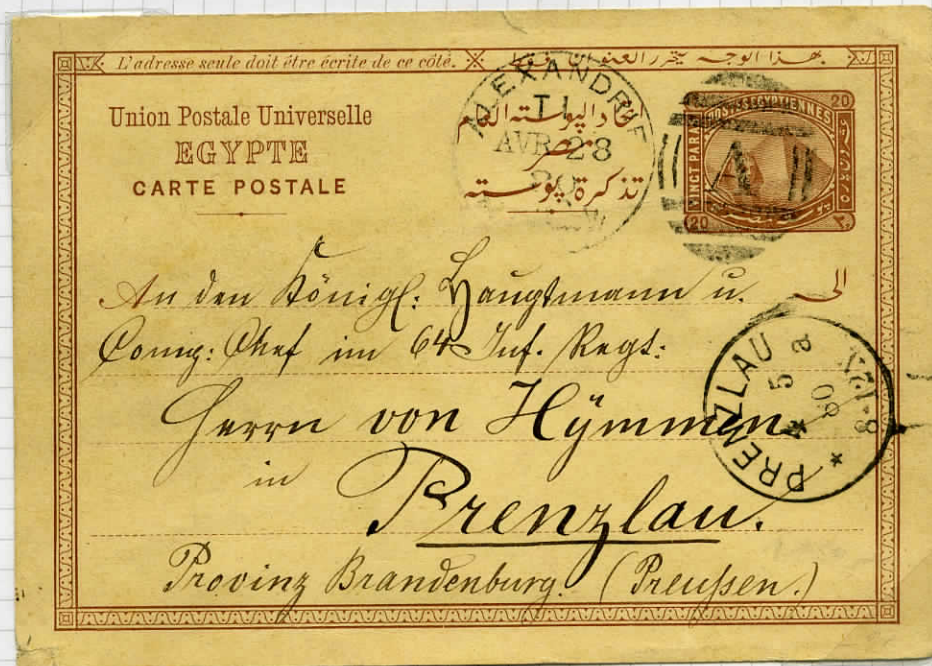 L'adresse seule doit être écrite de ce côté.
بهذا الوجه يتحرر العنوان فقط
Union Postale Universelle
EGYPTE
CARTE POSTALE
اتحاد البوسته العام
مصر
تذكرة بوسته
ALEXANDRIE
T I
AVR 28
80
A
20
POSTES EGYPTIENNES
VINGT PARA
20
٢٠
الى
An den Königl: Hauptmann u.
Comp: Chef im 64 Inf. Regt:
Herrn von Hymmen
in
Prenzlau.
Provinz Brandenburg. (Preußen.)
PRENZLAU
5
80
a
8-12N